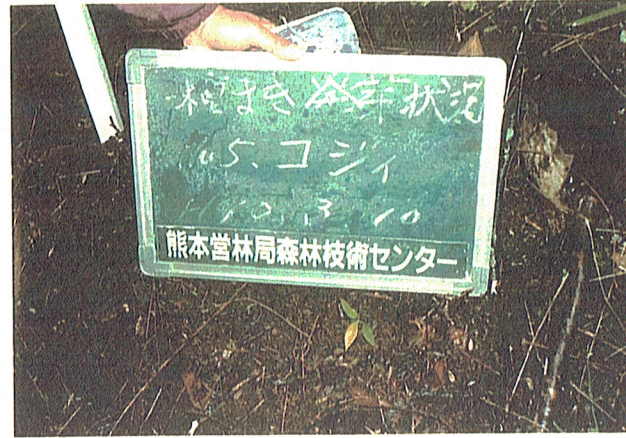 直まき発芽状況
No5. コジイ
H12.3.10
熊本営林局森林技術センター